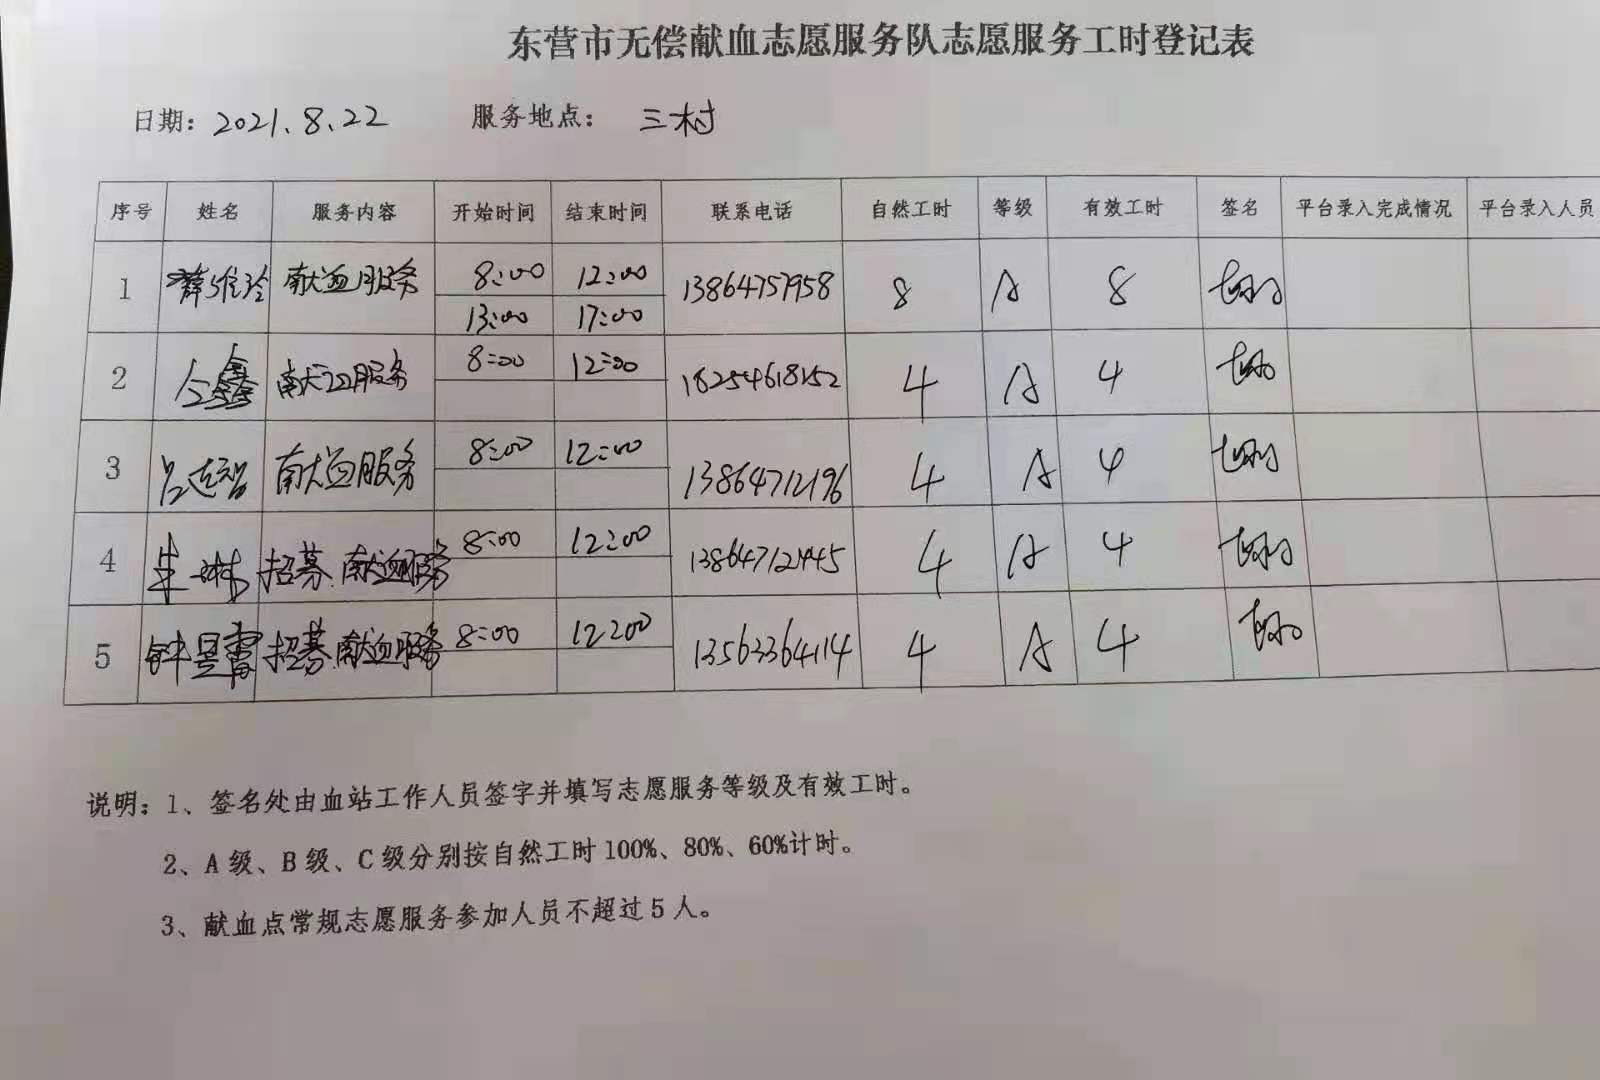 东营市无偿献血志愿服务队志愿服务工时登记表
日期: 2021.8.22 服务地点: 三村
序号 姓名 服务内容 开始时间 结束时间 联系电话 自然工时 等级 有效工时 签名 平台录入完成情况 平台录入人员
1 薛维玲 献血服务 8:00 12:00 13864757958 8 A 8
13:00 17:00
2 仝鑫 献血服务 8:00 12:00 18254618152 4 A 4
3 吕连智 献血服务 8:00 12:00 13864712196 4 A 4
4 朱琳 招募.献血服务 8:00 12:00 4 A 4
5 钟昱霄 招募.献血服务 8:00 12:00 13563364114 4 A 4
说明: 1、签名处由血站工作人员签字并填写志愿服务等级及有效工时。
2、A 级、B 级、C 级分别按自然工时 100%、80%、60%计时。
3、献血点常规志愿服务参加人员不超过 5 人。